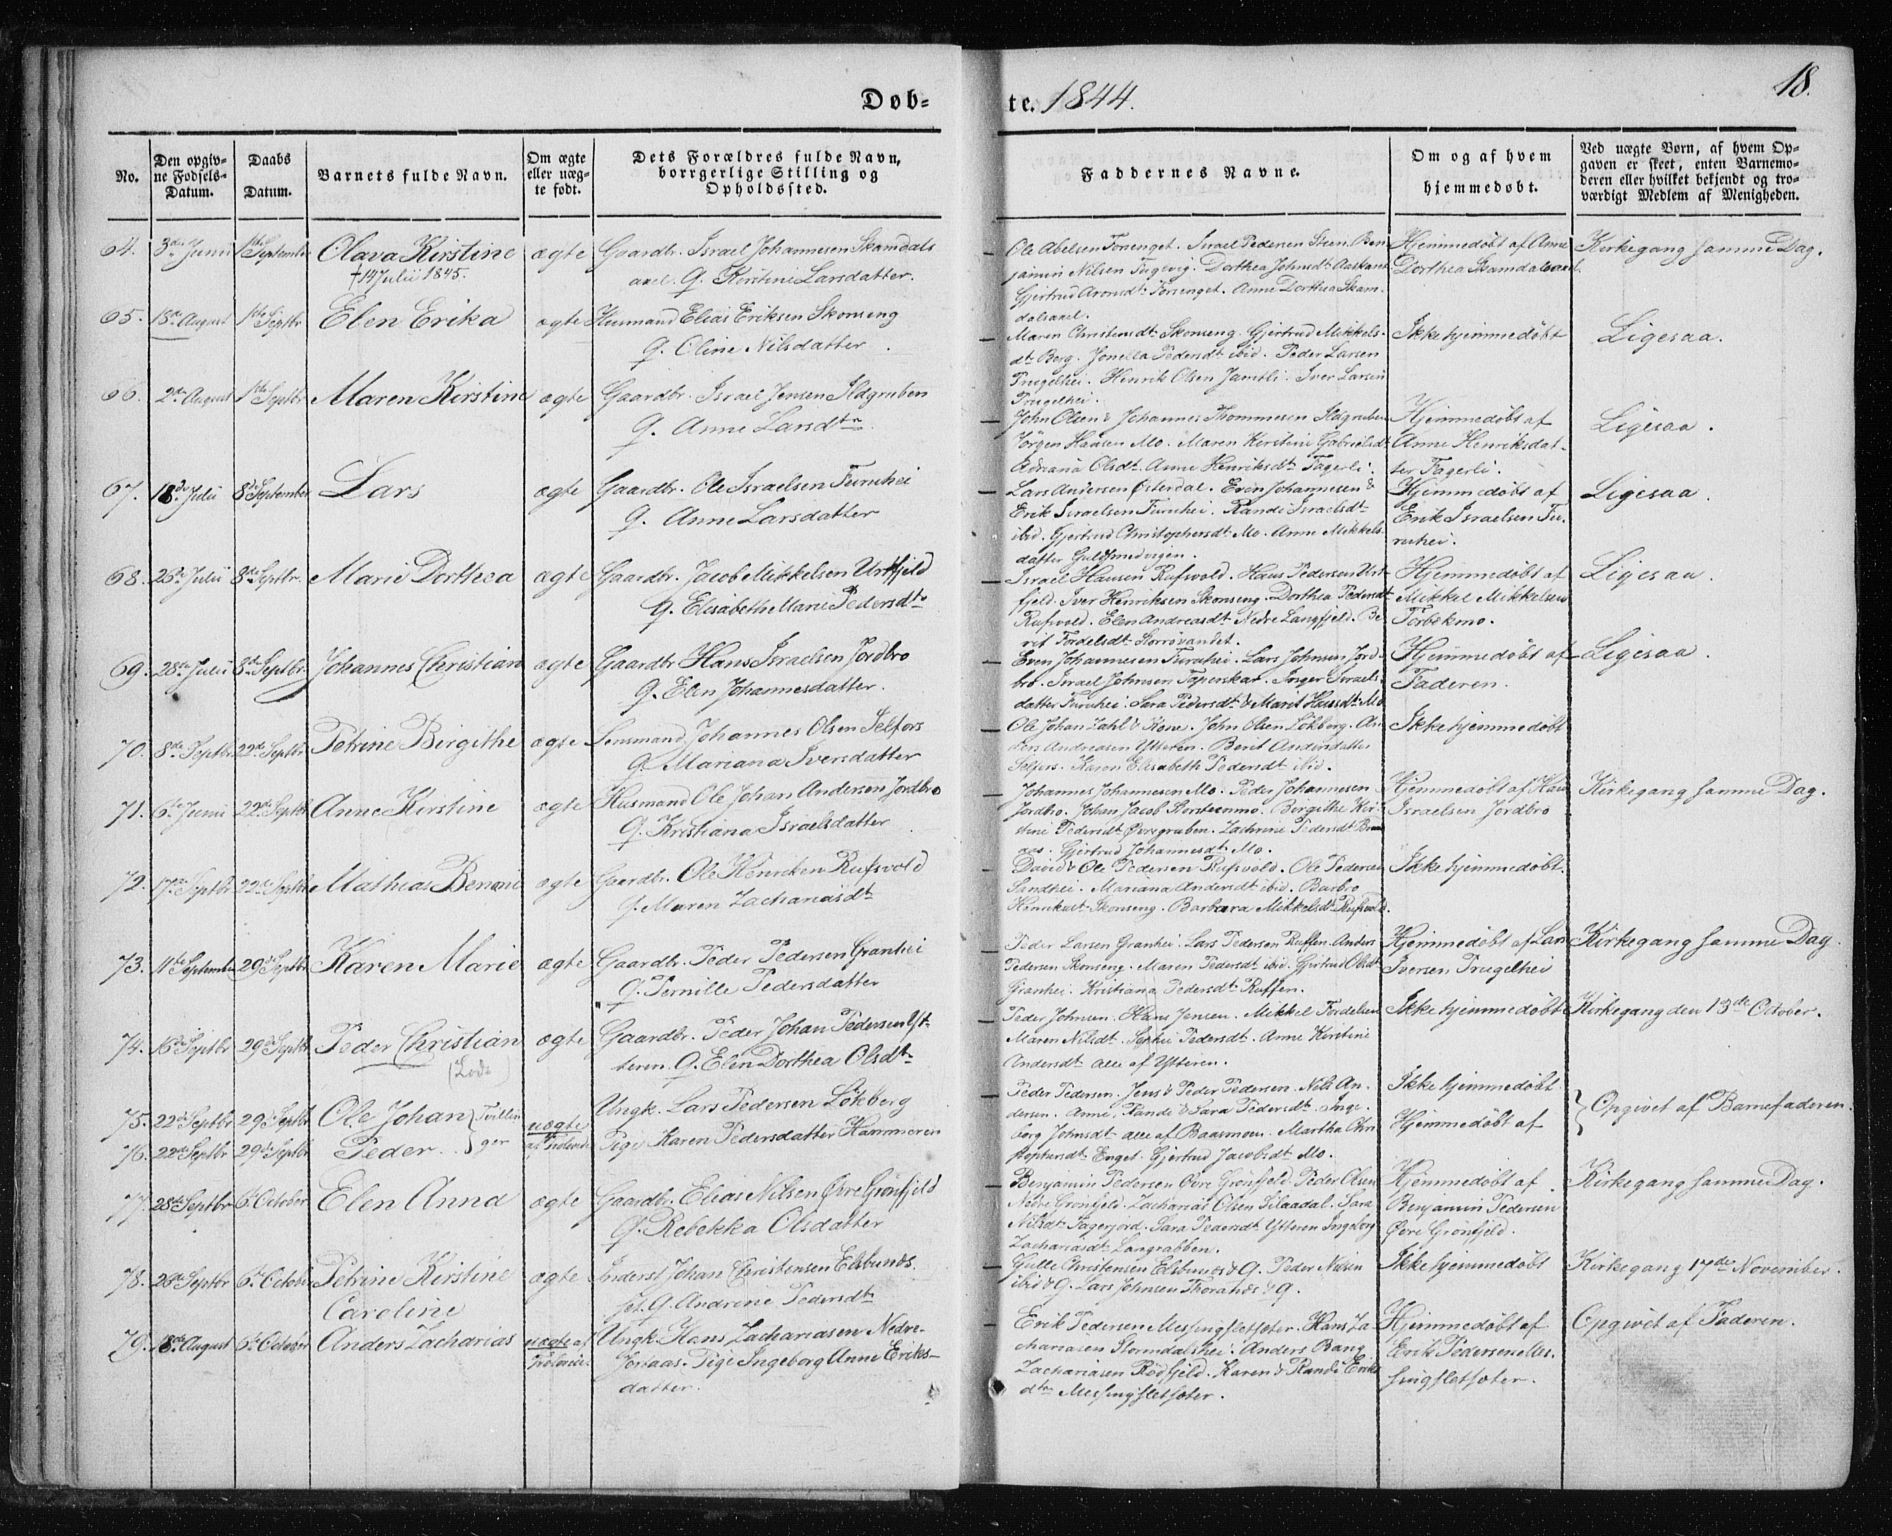 18.
Døb= te. 1844.
No.
Den opgiv-
ne Fødsels-
Datum.
Daabs
Datum.
Barnets fulde Navn.
Om ægte
eller uæg-
te født.
Dets Forældres fulde Navn,
borrgerlige Stilling og
Opholdssted.
Faddernes Navne.
Om og af hvem
hjemmedøbt.
Ved uægte Børn, af hvem Op-
gaven er skeet, enten Barnemo-
deren eller hvilket bekjendt og tro-
værdigt Medlem af Menigheden.
64. 3de Junii 1ste September Olava Kirstine ægte Gaardbr. Israel Johannesen Skamdals
† 14 Julii 1845.
axel. Q. Kirstine Larsdatter.
Ole Abelsen Forsenget. Israel Pedersen Steen. Ben
jamin Nilsen Fugevig. Dorthea Johnsdt Aaskard
Gjertrud Aronsdt Forsenget. Anne Dorthea Skam
dalsaxel.
Hjemmedøbt af Anne
Dorthea Skamdalsaxel
Kirkegang samme Dag.
65. 18de August 1ste Septbr Elen Erika ægte Huusmand Elias Eriksen Skonseng
Q. Oline Nilsdatter.
Maren Christensdt Skonseng. Gjertrud Mikkels-
dt Berg. Jonella Pedersdt ibid. Peder Larsen
Trugelhei. Henrik Olsen Jamtli. Iver Larsen
Trugelhei.
Ikke hjemmedøbt
Ligesaa.
66. 2de August 1ste Septbr Maren Kirstine ægte Gaardbr. Israel Jensen Ildgruben
Q. Anne Larsdtr.
John Olsen & Johannes Thommesen Ildgruben
Jörgen Hansen Mo. Maren Kirstine Gabrielsdt
Adriana Olsdt. Anne Henriksdt Fagerli.
Hjemmedøbt af
Anne Henriksdat-
ter Fagerli.
Ligesaa.
67. 18de Julii 8de September Lars ægte Gaardbr. Ole Israelsen Furuhei
Q. Anne Larsdatter
Lars Andersen Østerdal. Even Johannesen &
Erik Israelsen Furuhei. Randi Israelsdt
ibid. Gjertrud Christophersdt Mo. Anne Mikkels
datter Guldsmedvigen.
Hjemmedøbt af
Erik Israelsen Fu-
ruhei.
Ligesaa.
68. 26de Julii 8de Septbr. Marie Dorthea ægte Gaardbr. Jacob Mikkelsen Urtfjeld
Q. Elisabeth Marie Pedersdtr
Israel Hansen Rufsvold. Hans Pedersen Urt-
fjeld. Iver Henriksen Skonseng. Dorthea Pedersdt
Rufsvold. Elen Andreasdt Nedre Langfjeld. Be
rit Fordelsdt Storrøvandet.
Hjemmedøbt af
Mikkel Mikkelsen
Torbekmo.
Ligesaa.
69. 28de Julii 8de Septbr Johannes Christian ægte Gaardbr Hans Israelsen Jordbro
Q. Elen Johannesdatter.
Even Johannesen Furuhei. Lars Johnsen Jord-
bro. Israel Johnsen Toperskar. Inger Israels-
datter Furuhei. Sara Pedersdt & Marit Hansdt Mo
Hjemmedøbt af
Faderen.
Ligesaa.
70. 8de Septbr 22de Septbr Petrine Birgithe ægte Lensmand Johannes Olsen Selfors
Q. Mariana Iversdatter
Ole Johan Zahl & Kone. John Olsen Lökberg. An
ders Andreasen Ytteren. Berit Andersdatter
Selfors. Karen Elisabeth Pedersdt ibid.
Ikke hjemmedøbt
71. 6te Junii 22de Septbr Anne Kirstine ægte Husmand Ole Johan Andersen Jordbro
Q. Kristiana Israelsdatter
Johannes Johannesen Mo. Peder Johannesen
Jordbro. Johan Jacob Storstenmo. Birgithe Kir-
stine Pedersdt Øvregruben. Zachrine Pedersdt
Gjertrud Johannesdt Mo.
Hjemmedøbt af Hans
Israelsen Jordbro
Kirkegang samme Dag.
72. 17de Septbr 22de Septbr Mathias Benoni ægte Gaardbr. Ole Henriksen Rufsvold
Q. Maren Zachariasdt
David & Ole Pedersen Rufsvold. Ole Pedersen
Sandhei. Mariana Andersdt ibid. Barbro
Henriksdt Skonseng. Barbara Mikkelsdt Rufsvold.
Ikke hjemmedøbt.
73. 11te September 29de Septbr Karen Marie ægte Gaardbr. Peder Pedersen Granhei
Q. Pernille Pedersdatter
Peder Larsen Granhei. Lars Pedersen Ruffen. Anders
Pedersen Skonseng. Maren Pedersdt ibid. Gjertrud Olsdt
Granhei. Kristiana Pedersdt Ruffen.
Hjemmedøbt af Lars
Iversen Trugelhei
Kirkegang samme Dag.
74. 16de Septbr 29de Septbr Peder Christian ægte Gaardbr. Peder Johan Pedersen Yt-
teren. Q. Elen Dorthea Olsdtr
Peder Johnsen. Hans Jensen. Mikkel Fordelsen
Maren Nilsdt. Sophie Pedersdt. Anne Kirstine
Andersdt alle af Ytteren.
Ikke hjemmedøbt
Kirkegang den 13de October.
75. 22de Septbr 29de Septbr Ole Johan } Tvillin uægte Ungk. Lars Pedersen Lökberg
76. 22de Septbr 29de Septbr Peder. } ger Pige Karen Pedersdatter Hammeren
Peder Pedersen. Jens & Peder Pedersen. Nils An-
dersen. Anne, Randi & Sara Pedersdt. Inge
borg Johnsdt alle af Baasmoen. Martha Chri
stophersdt Enget. Gjertrud Jacobsdt Mo.
Ikke hjemmedøbt
Hjemmedøbt af
} Opgivet af Barnefaderen.
77. 28de Septbr 6te October Elen Anna ægte Gaardbr. Elias Nilsen Øvre Grønfjeld
Q. Rebekka Olsdatter
Benjamin Pedersen Øvre Grönfjeld. Peder Olsen
Nedre Grönfjeld. Zacharias Olsen Pilaadal. Sara
Nilsdt Fagerjord. Sara Pedersdt Ytteren. Ingeborg
Zachariasdt Langrabben.
Hjemmedøbt af
Benjamin Pedersen
Øvre Grönfjeld.
Kirkegang samme Dag.
78. 26de Septbr 6te October Petrine Kirstine ægte Inderst Johan Christensen Eilsbunds.
Caroline Q. Andrine Pedersdt
Gulle Christensen Eilsbunds & Q. Peder Nilsen
ibid & Q. Lars Johnsen Thoranes & Q.
Ikke hjemmedøbt
Kirkegang 17de November.
79. 18de August 6te October Anders Zacharias uægte af Ungk. Hans Zachariasen Nedre-
Pige Ingeborg Anne Eriks-
datter.
Erik Pedersen Messingsletsæter. Hans Za-
chariasen Stormdalshei. Anders Bang
Zachariasen Rödfjeld. Karen & Randi Eriks
dtr Messingsletsæter.
Hjemmedøbt af
Erik Pedersen Mes-
singsletsæter.
Opgivet af Faderen.